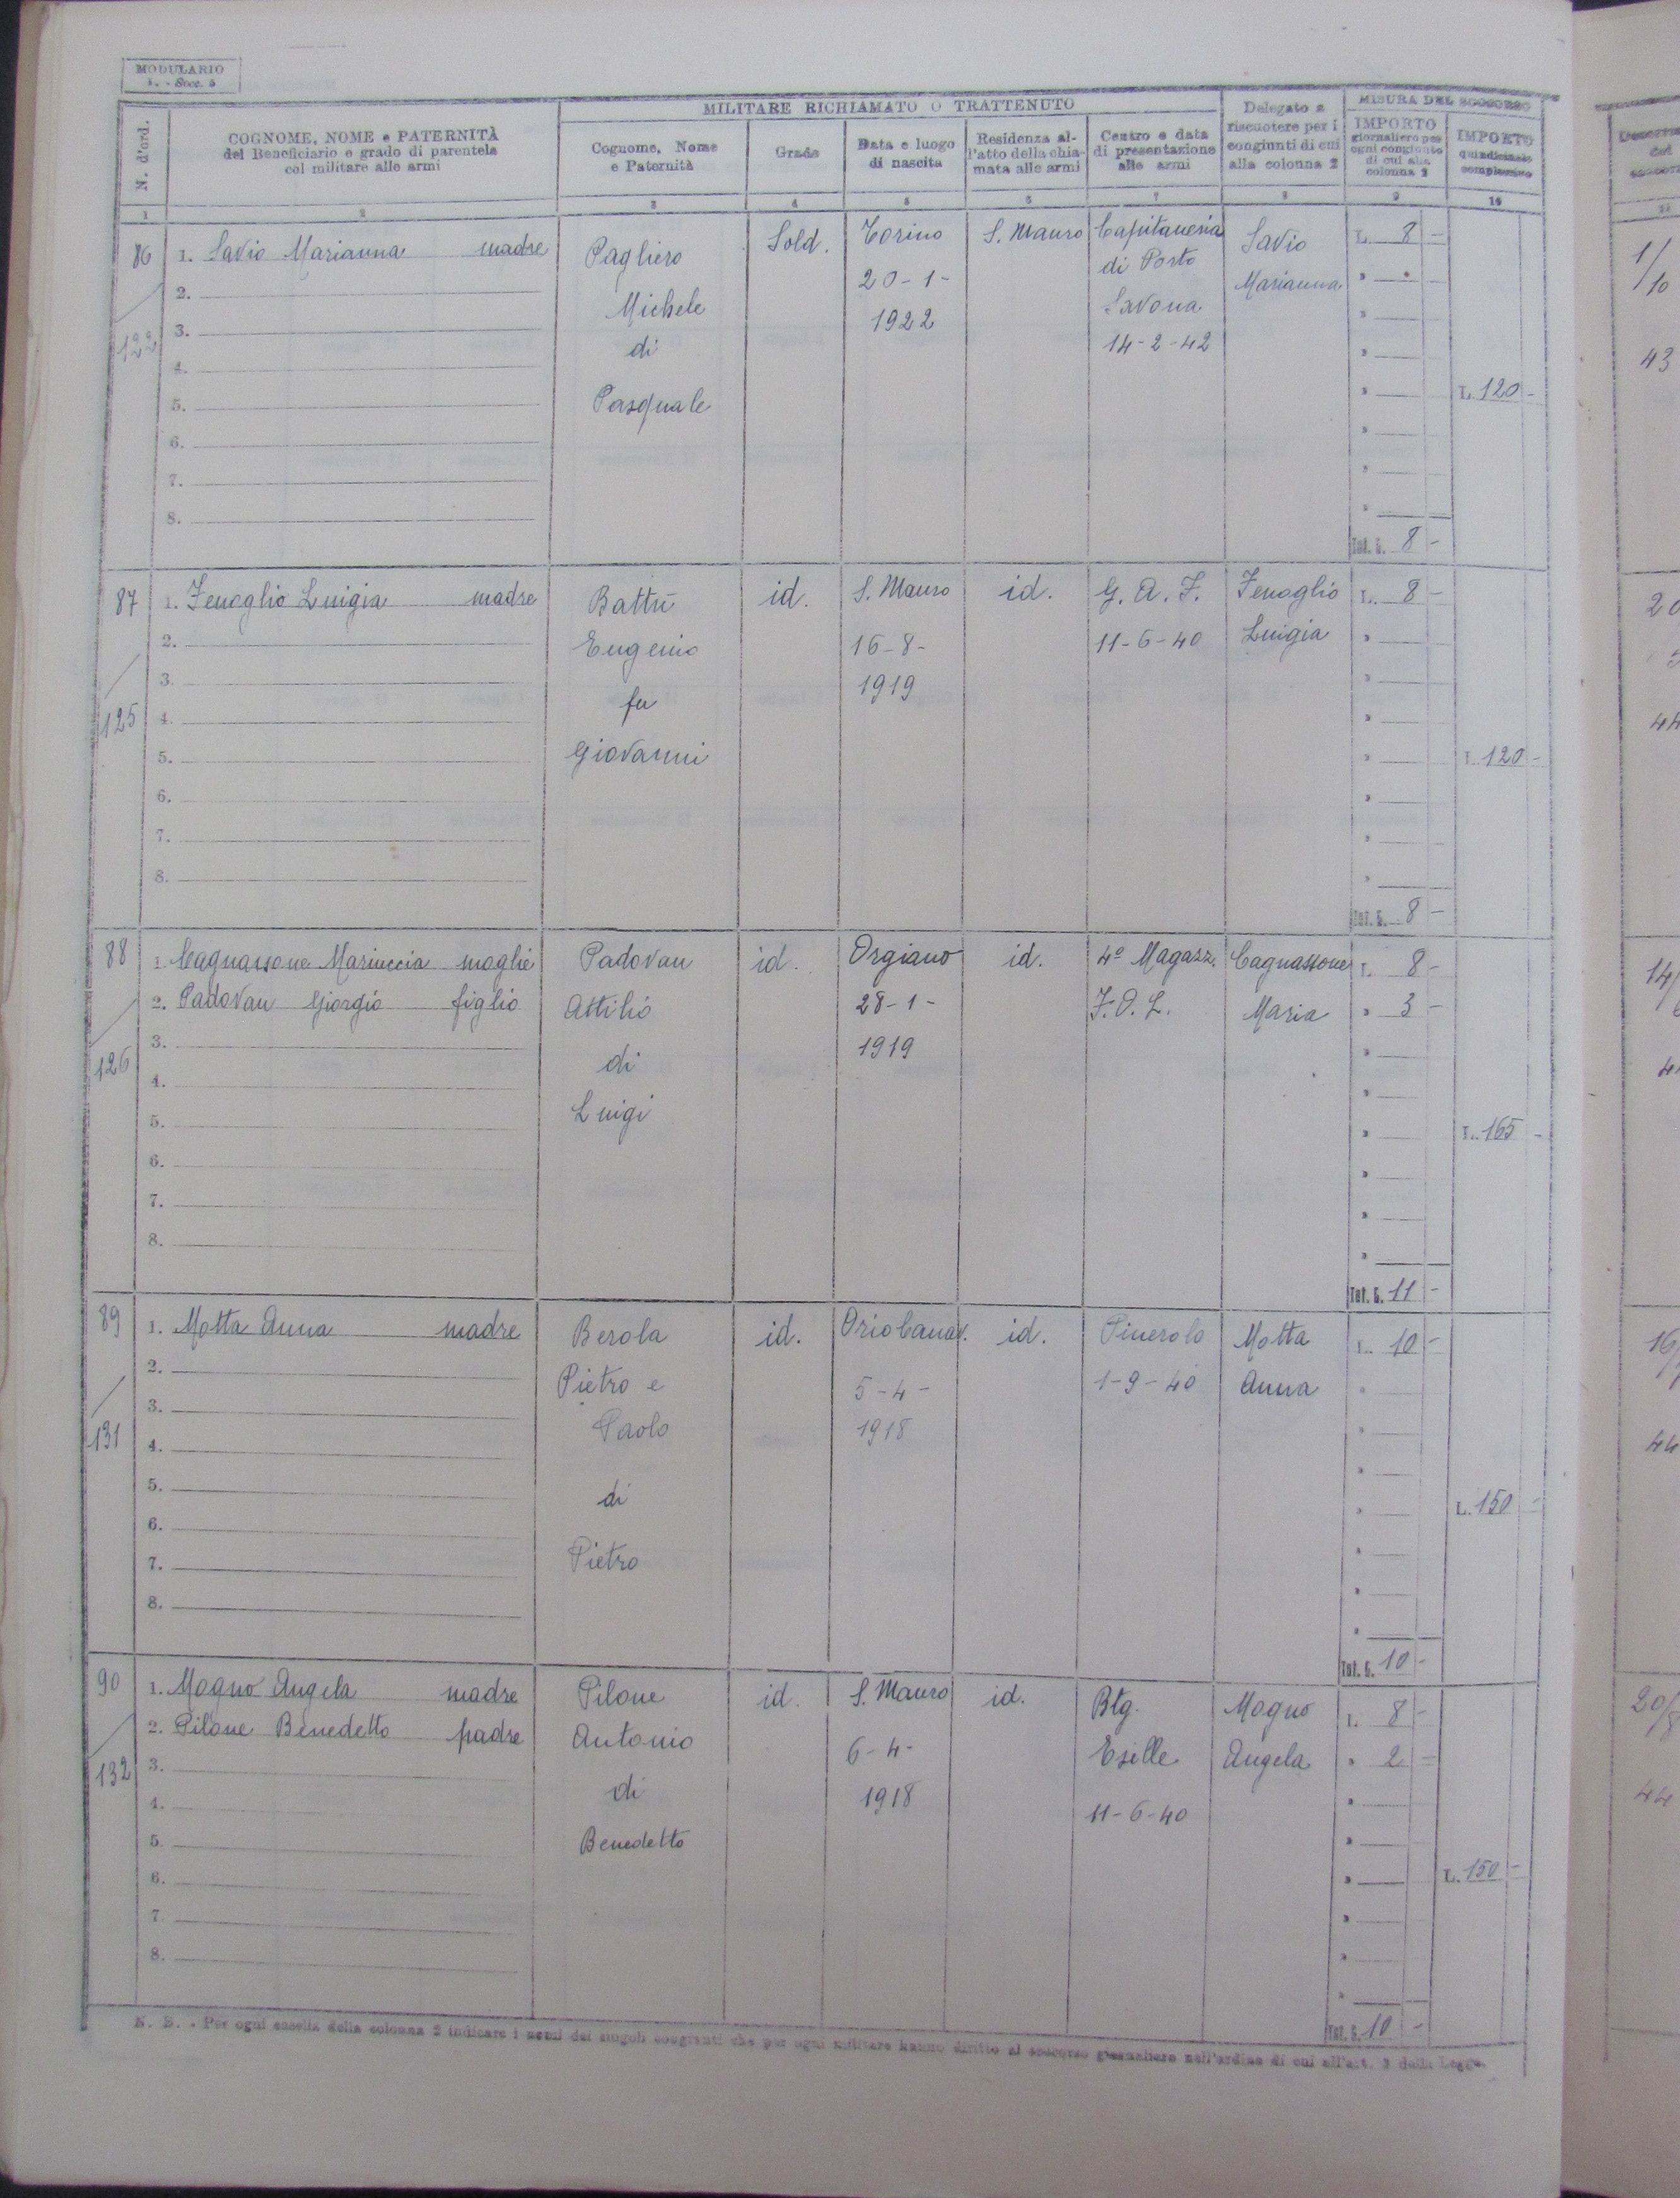 MODULARIO
MILITARE RICHIAMATO O TRATTENUTO
MISURA DEL SOCCORSO
N. d'ord.
COGNOME, NOME e PATERNITÀ
del Beneficiario e grado di parentela
col militare alle armi
Cognome, Nome
e Paternità
Grado
Data e luogo
di nascita
Residenza al-
l'atto della chia-
mata alle armi
Centro e data
di presentazione
alle armi
Delegato a
riscuotere per i
congiunti di cui
alla colonna 2
IMPORTO
giornaliero per
ogni congiunto
di cui alla
colonna 2
IMPORTO
quindicinale
complessivo
1 2 3 4 5 6 7 8 9 10
86
122
1. Savio Marianna madre
2.
3.
4.
5.
6.
7.
8.
Pagliero
Michele
di
Pasquale
Sold.
Torino
20-1-
1922
S. Mauro
Capitaneria
di Porto
Savona
14-2-42
Savio
Marianna
L. 8 -
Tot. G. 8 -
L. 120 -
87
125
1. Fenoglio Luigia madre
2.
3.
4.
5.
6.
7.
8.
Battù
Eugenio
fu
Giovanni
id.
S. Mauro
16-8-
1919
id.
G. A. F.
11-6-40
Fenoglio
Luigia
L. 8 -
Tot. G. 8 -
L. 120 -
88
126
1. Cagnassone Mariuccia moglie
2. Padovan Giorgio figlio
3.
4.
5.
6.
7.
8.
Padovan
Attilio
di
Luigi
id.
Orgiano
28-1-
1919
id.
4º Magazz.
Cagnassone
Maria
L. 8 -
» 3 -
Tot. G. 11 -
L. 165 -
89
131
1. Motta Anna madre
2.
3.
4.
5.
6.
7.
8.
Berola
Pietro e
Paolo
di
Pietro
id.
Orio Canav.
5-4-
1918
id.
Pinerolo
1-9-40
Motta
Anna
L. 10 -
Tot. G. 10 -
L. 150 -
90
132
1. Mogno Angela madre
2. Pilone Benedetto padre
3.
4.
5.
6.
7.
8.
Pilone
Antonio
di
Benedetto
id.
S. Mauro
6-4-
1918
id.
Btg.
Exille
11-6-40
Mogno
Angela
L. 8 -
» 2 -
Tot. G. 10 -
L. 150 -
N. B. - Per ogni casella della colonna 2 indicare i nomi dei singoli congiunti che per ogni militare hanno diritto al soccorso giornaliero nell'ordine di cui all'art. 3 della Legge.